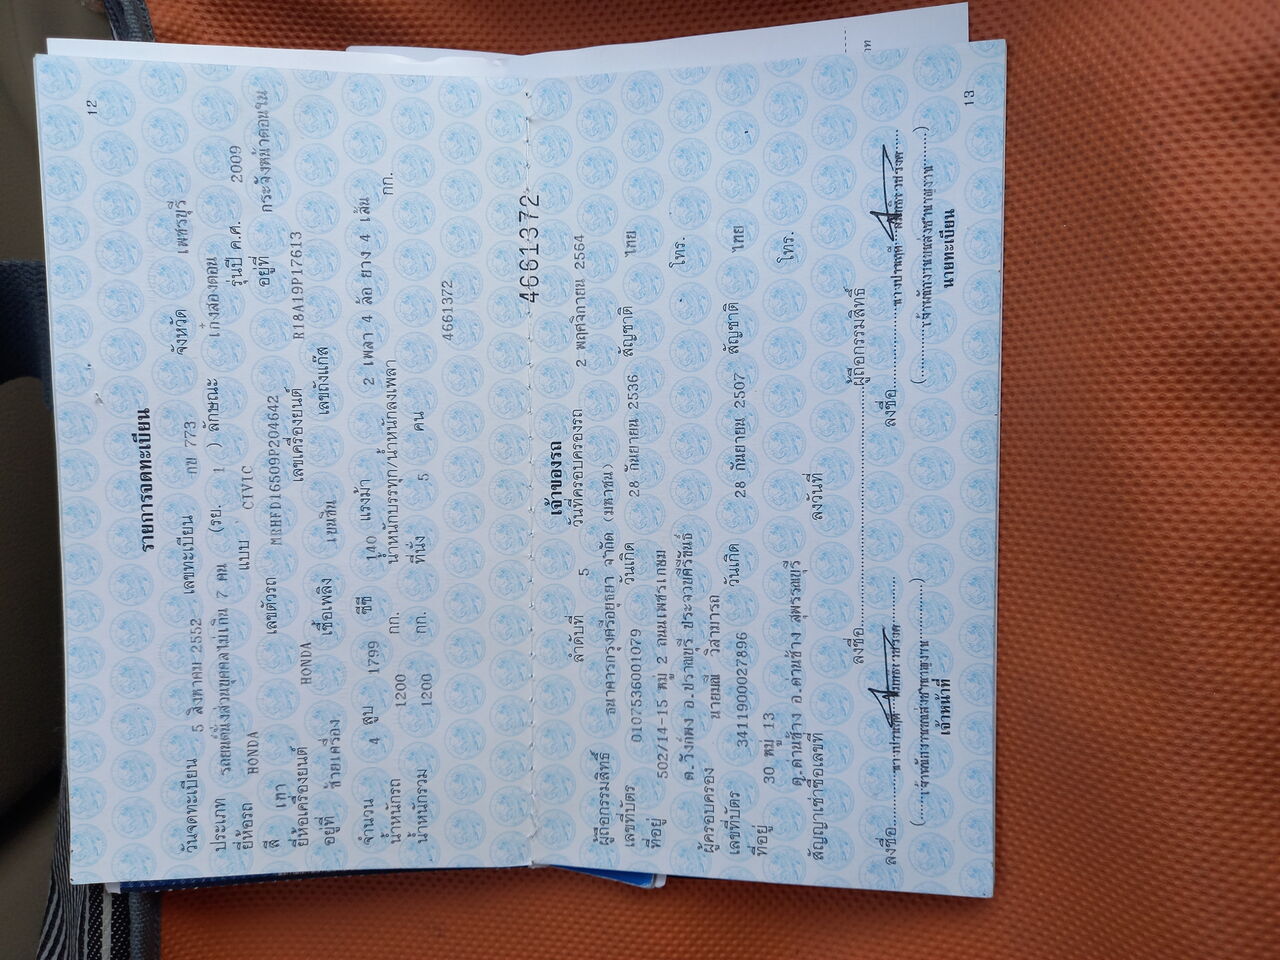 12
รายการจดทะเบียน
วันจดทะเบียน 5 สิงหาคม 2552 เลขทะเบียน กบ 773 จังหวัด เพชรบุรี
ประเภท รถยนต์นั่งส่วนบุคคลไม่เกิน 7 คน (รย. 1 ) ลักษณะ เก๋งสองตอน
ยี่ห้อรถ HONDA แบบ CIVIC รุ่นปี ค.ศ. 2009
สี เทา เลขตัวรถ MRHFD16509P204642 อยู่ที่ กระจังหน้าตอนใน
ยี่ห้อเครื่องยนต์ HONDA เลขเครื่องยนต์ R18A19P17613
อยู่ที่ ซ้ายเครื่อง เชื้อเพลิง เบนซิน เลขถังแก๊ส
จำนวน 4 สูบ 1799 ซีซี 140 แรงม้า 2 เพลา 4 ล้อ ยาง 4 เส้น
น้ำหนักรถ 1200 กก. น้ำหนักบรรทุก/น้ำหนักลงเพลา กก.
น้ำหนักรวม 1200 กก. ที่นั่ง 5 คน
4661372
4661372
เจ้าของรถ
ลำดับที่ 5 วันที่ครอบครองรถ 2 พฤศจิกายน 2564
ผู้ถือกรรมสิทธิ์ ธนาคารกรุงศรีอยุธยา จำกัด (มหาชน)
เลขที่บัตร 0107536001079 วันเกิด 28 กันยายน 2536 สัญชาติ ไทย
ที่อยู่ 502/14-15 หมู่ 2 ถนนเพชรเกษม
ต.วังก์พง อ.ปราณบุรี ประจวบคีรีขันธ์ โทร.
ผู้ครอบครอง นายมณี วิสามารถ
เลขที่บัตร 3411900027896 วันเกิด 28 กันยายน 2507 สัญชาติ ไทย
ที่อยู่ 30 หมู่ 13
ต.ด่านช้าง อ.ด่านช้าง สุพรรณบุรี โทร.
สัญญาเช่าซื้อเลขที่ ลงวันที่
ลงชื่อ ผู้ถือกรรมสิทธิ์
ลงชื่อ ลงชื่อ
(เจ้าพนักงานขนส่งชำนาญงาน) (เจ้าพนักงานขนส่งชำนาญงาน)
เจ้าหน้าที่ นายทะเบียน
13